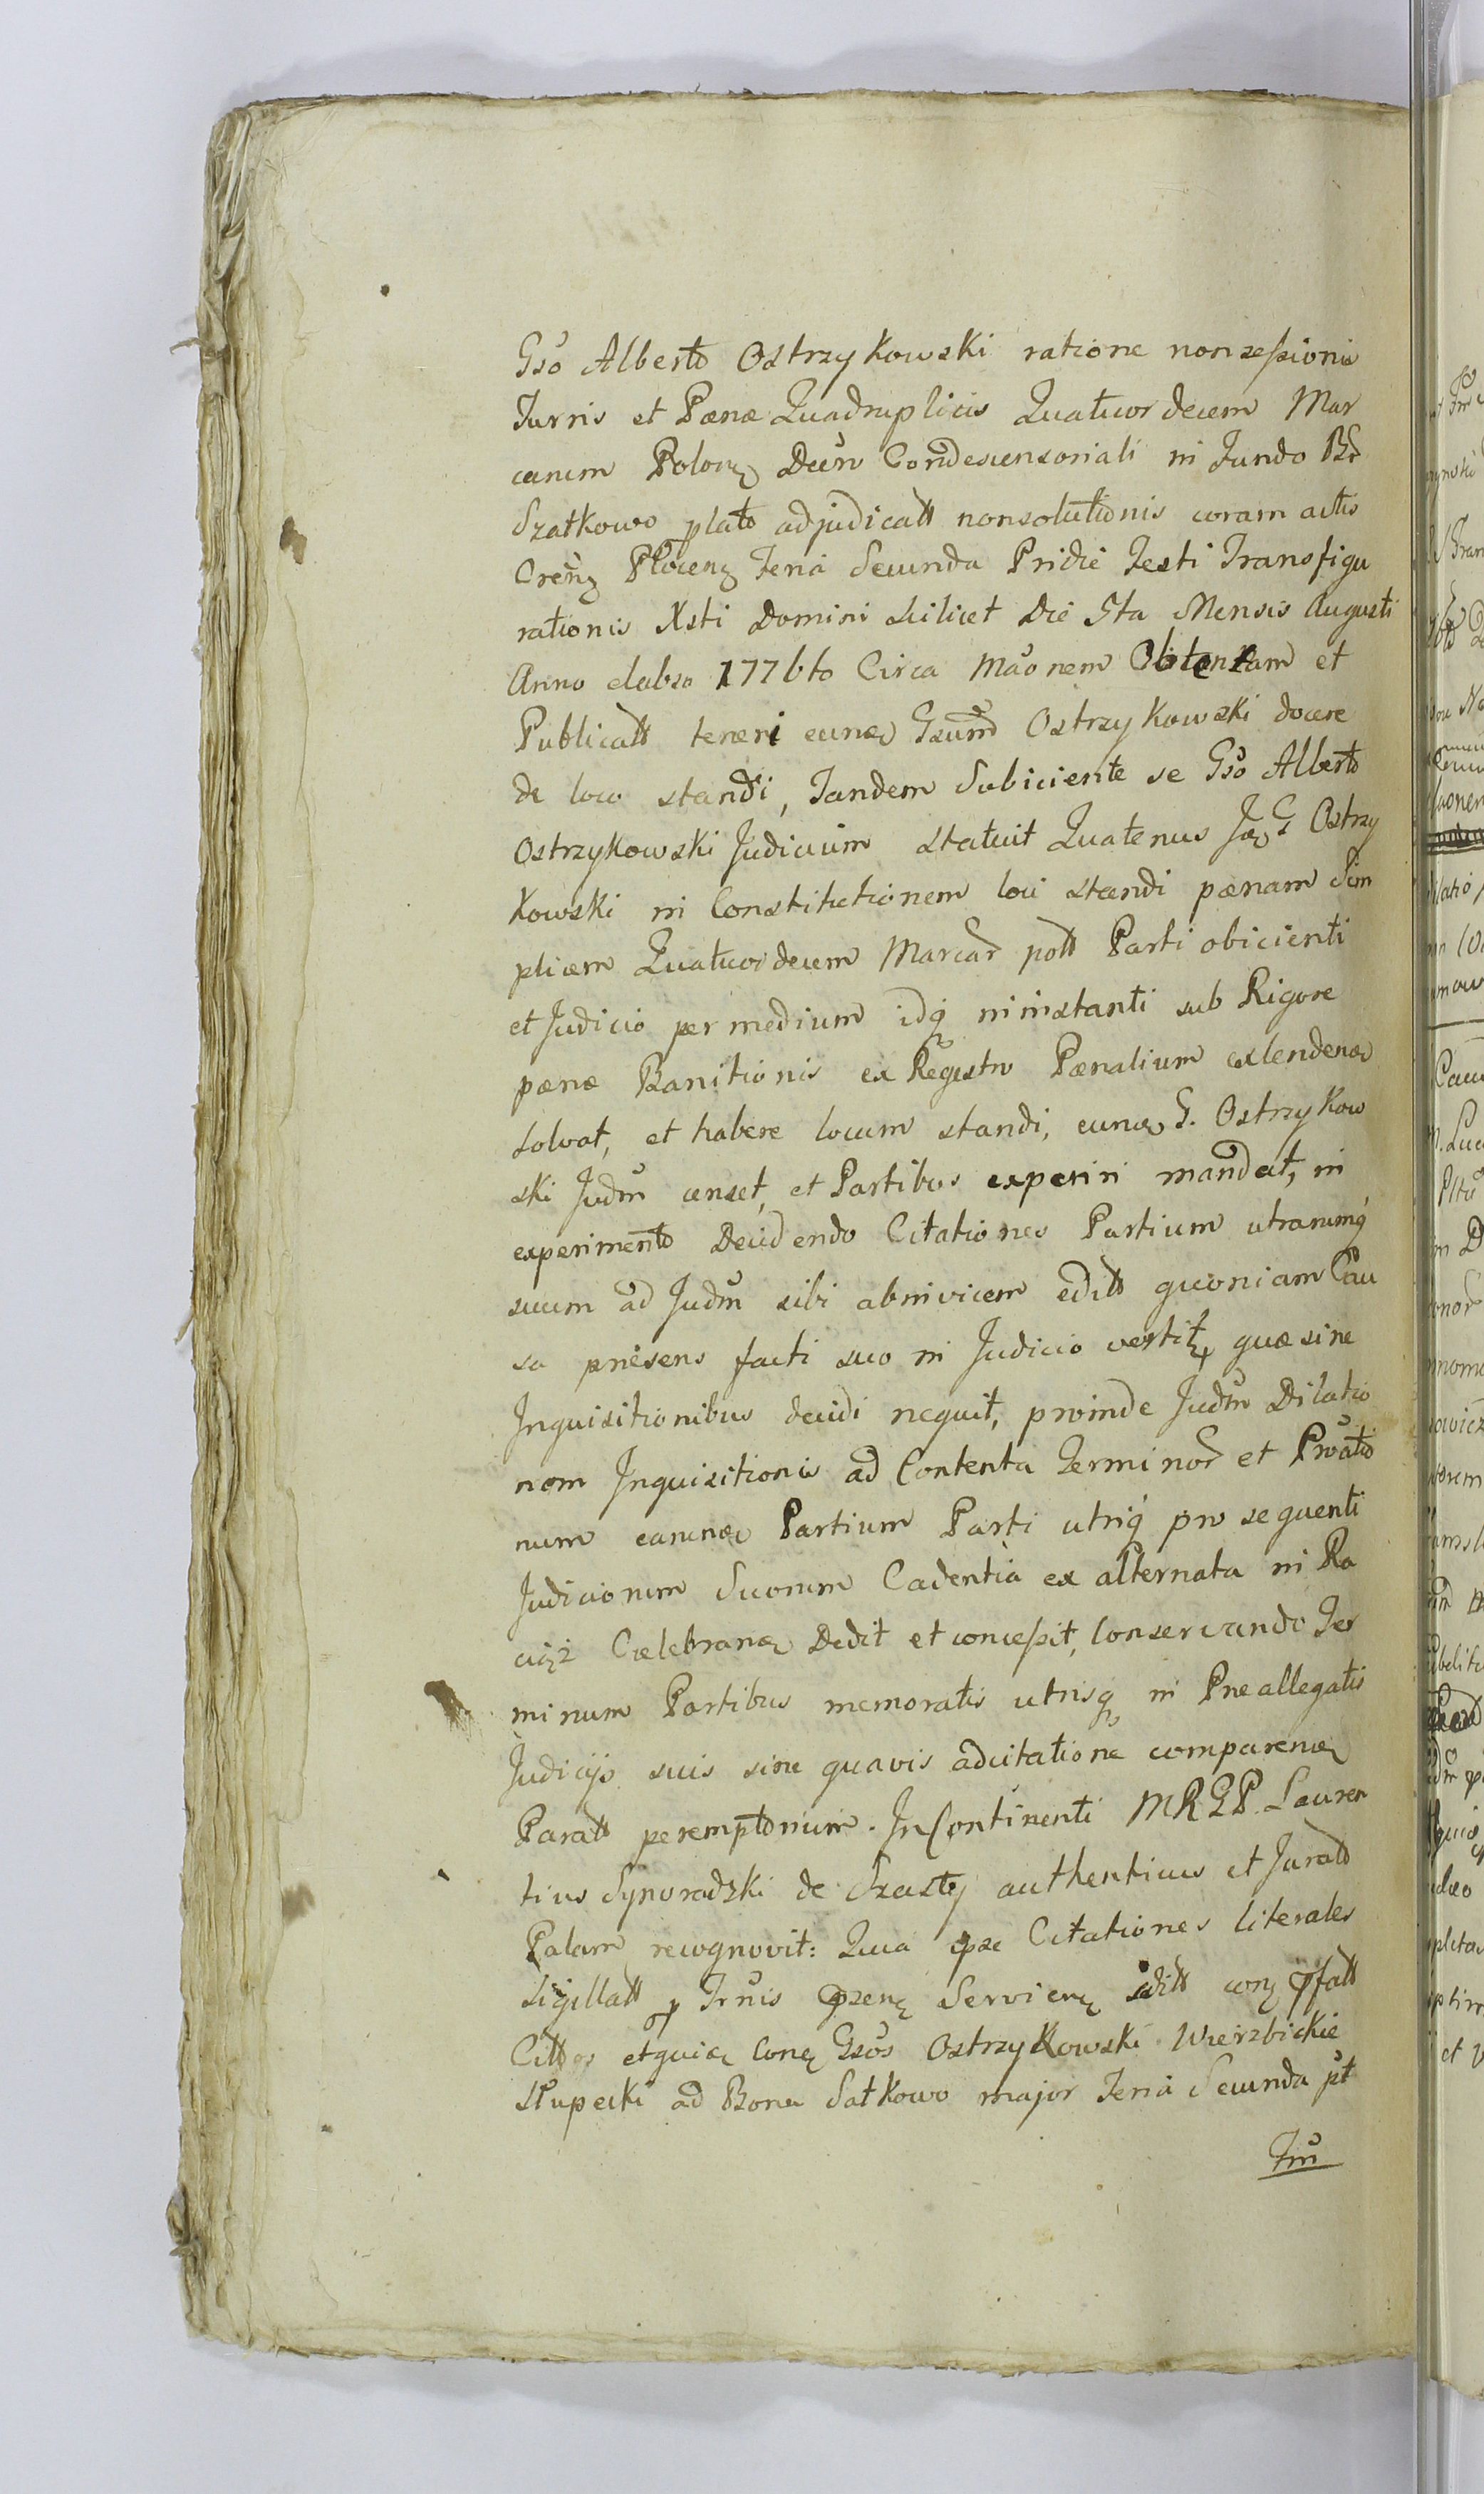 Gsõ Alberto Ostrzykowski ratione nonsessionis
Turris et Pænæ Quadruplicis Quatuordecem Mar
carum Polon Decrõ Condescensoriali in Fundo Br
Szatkowo plato adjudicatt nonsolutionis coram actis
Crẽn Plocen Feria Secunda Pridie Festi Transfigu
rationis Xsti Domini scilicet Die 5ta Mensis Augusti
Anno elabso 1776to Circa Maõnem Obtentam et
Publicatt teneri eund Gsum Ostrzykowski docere
de loco standi, Tandem Subiciente se Gsõ Alberto
Ostrzykowski Judicium statuit Quatenus Id G Ostrzy
kowski in Constitutionem loci standi pænam Sim
plicem Quatuordecem Marcar pott Parti obicienti
et Judicio per medium idq in instanti sub Rigore
pænæ Banitionis ex Regestro Pænalium extenden
solvat, et habere locum standi, eund G. Ostrzykow
ski Judm censet, et Partibus experiri mandat, in
experimento Decidendo Citationes Partium utrarumq
sucum ad Judm sibi abinvicem editt quoniam Cau
sa præsens facti suo in Judicio vertit, quæ sine
Inquisitionibus decidi nequit, proinde Judm Dilatio
nem Inquisitionis ad Contenta Terminor et Proatio
num earund Partium Parti utriq pro sequenti
Judiciorum Suorum Cadentia ex alternata in Ra
ciąż Cælebran Dedit et concessit, Conservando Ter
minum Partibus memoratis utrisq in Præallegatis
Judicijs suis sine quavis adcitatione comparen
Paratt peremptorium. In Continenti MRGP. Lauren
tius Synoradzki de Szasty authenticus et Jurato
Palam recognovit: Quia ipse Citationes literales
Sigillatt p Trnis Pzen Servien editt con pfatt
Cittos etquia Con Gsos Ostrzykowski Wierzbickie
Słupecki ad Bona Satkowo major Feria Secunda pt
Tm